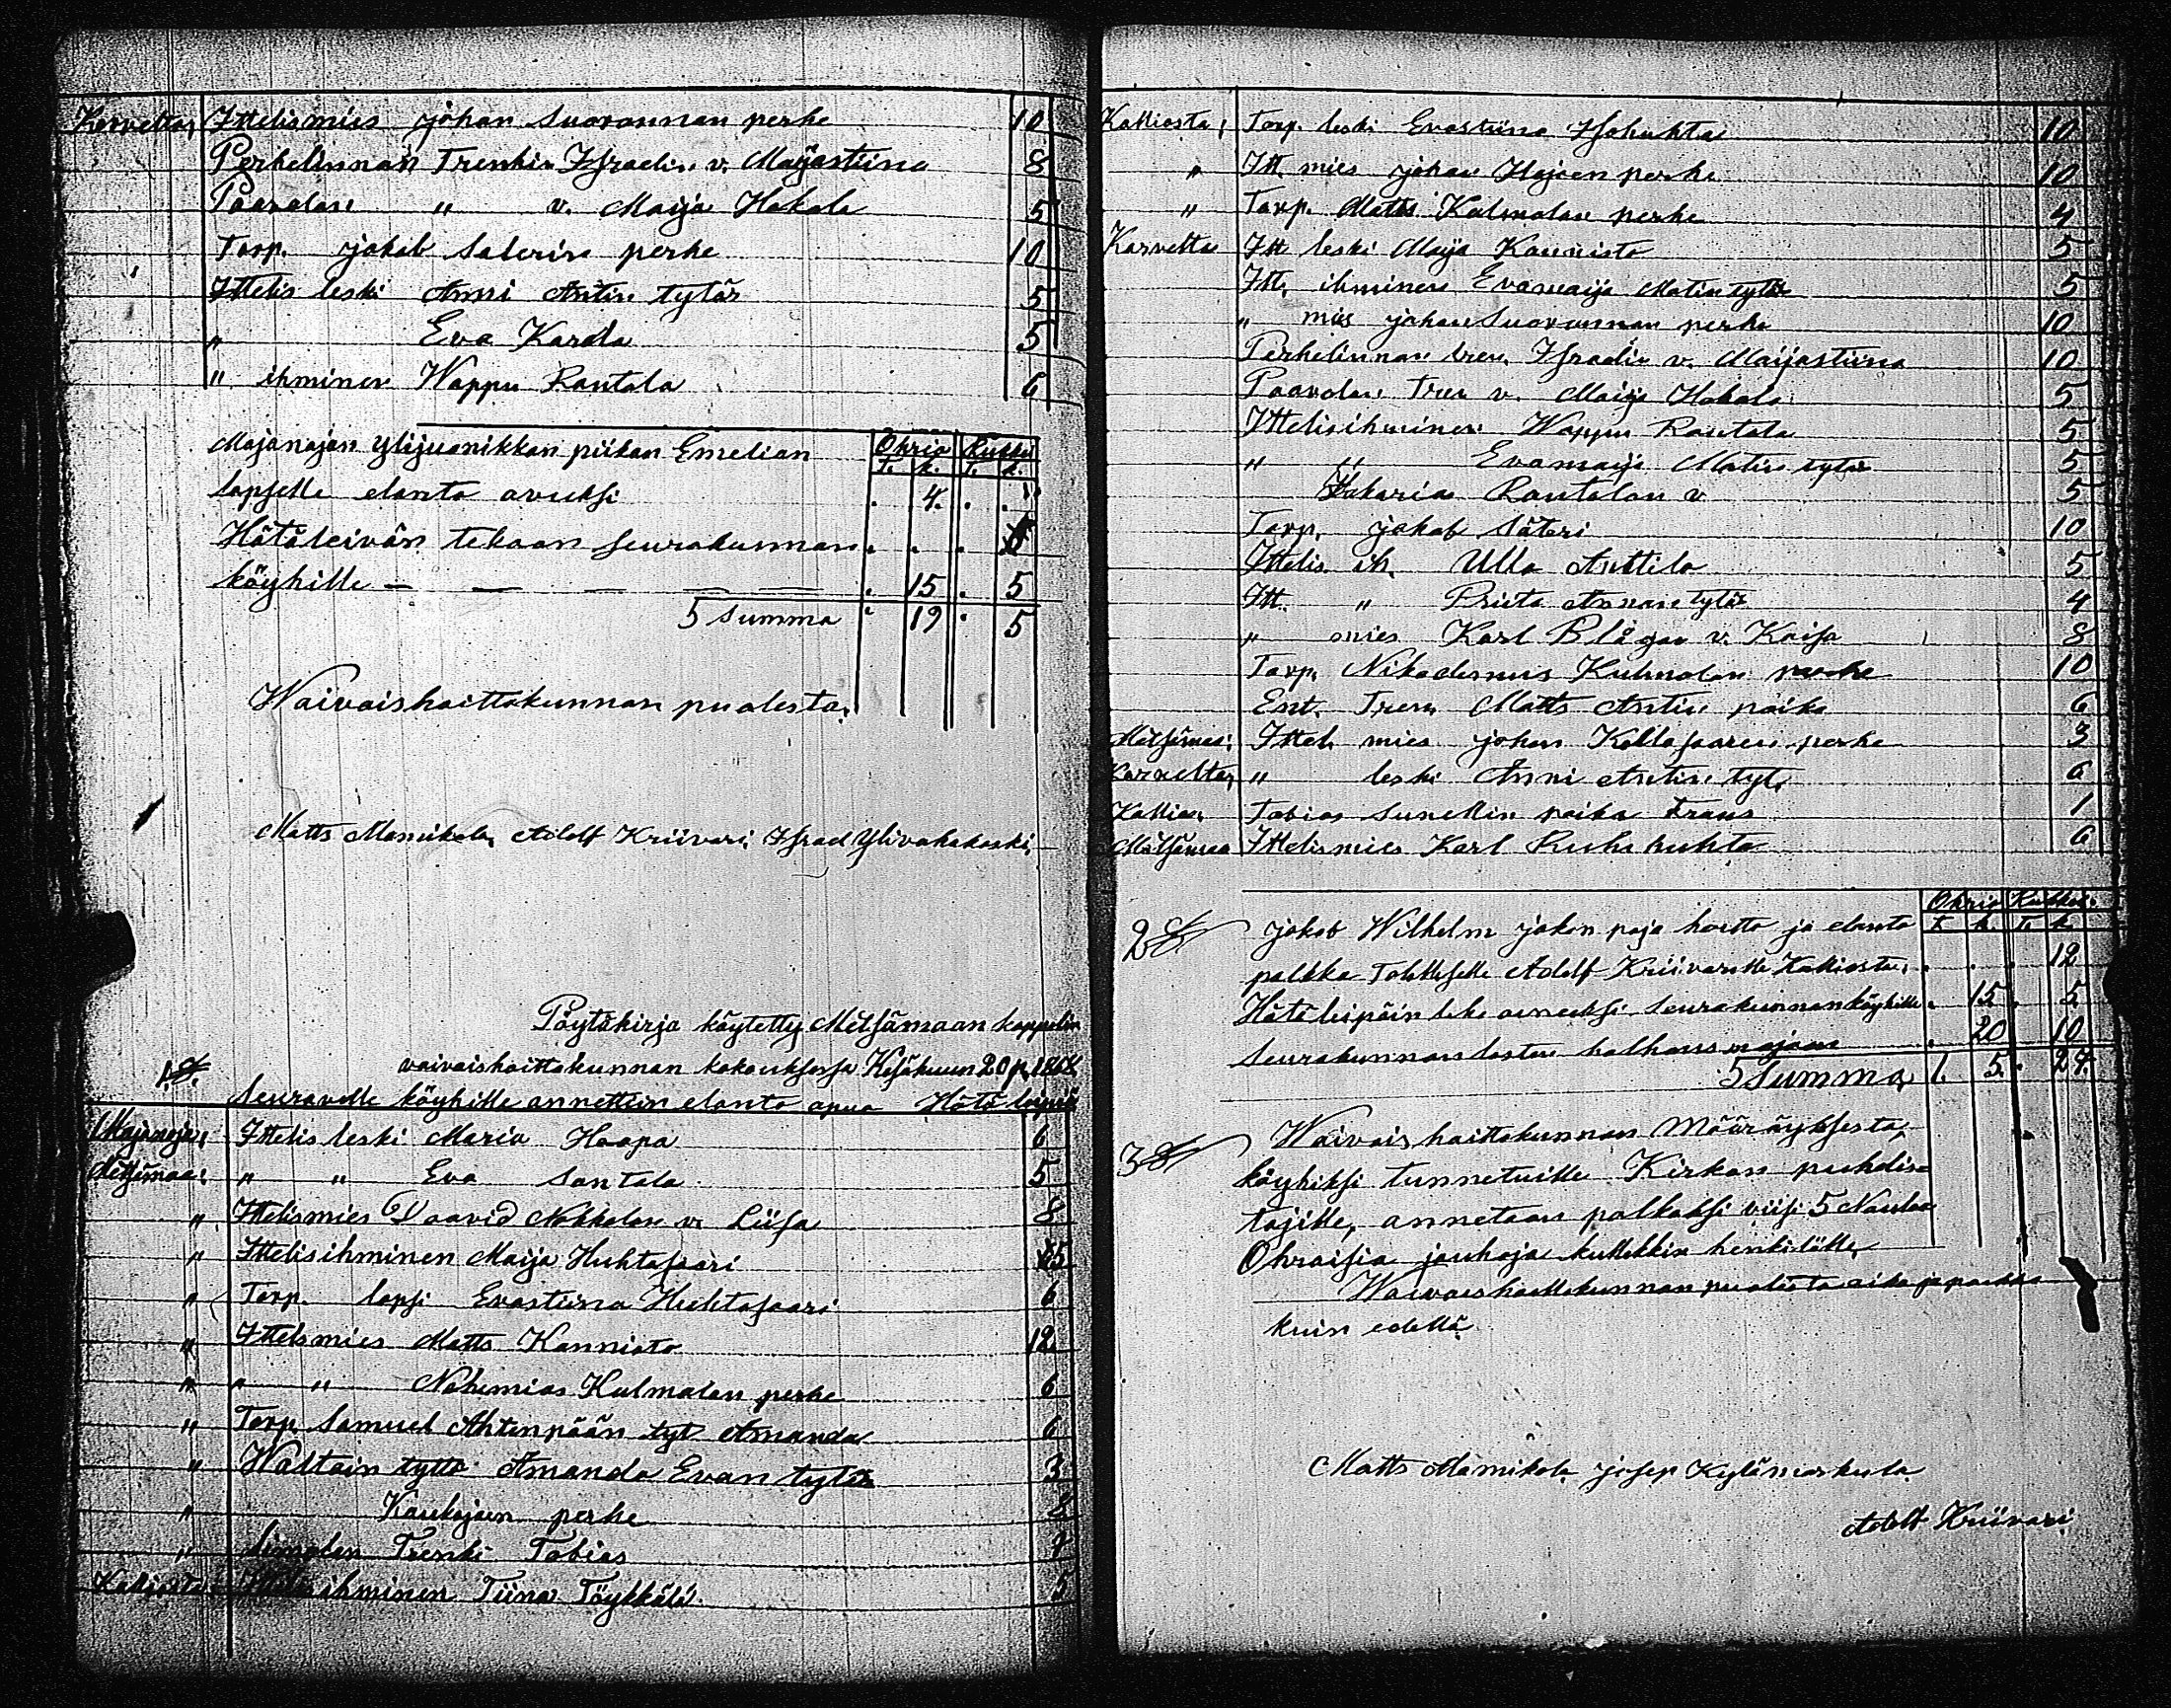 Korvelta, Ittelismies johan Suovannan perhe 10
Perhelinnan Trenkin Israelin v. Maijastiina 8
Paavolan " v. Maija Hakala 5
Torp. jakob Saterin perhe 10
Ittelis leski Anni Antin tytär 5
" Eva Karola 5
" ihminen Wappu Rantala 6
Majanojan Ylijuonikkan piikan Emelian Ohria Rukki
T. k. T. k.
lapselle elanto avuksi . 4. . "
Hätäleivän tekoon seurakunnan . . .
köyhille — — — — — . 15 . 5
5 Summa . 19 . 5
Waivaishoittokunnan puolesta.
Matts Mamikola, Adolf Kriivari, Israel Ylivakakoski,
Pöytäkirja käytetty Metsämaan kappelin
vaivaishoittokunnan kokouksessa Kesäkuun 20 p. 1868.
1 §. Seuraville köyhille annettiin elanto apua Hätä leipiä
Majanoja, Ittelis leski Maria Haapa 6
Metsämaa: " " Eva Santala 5
" Ittelismies Daavid Nokkolan v. Liisa 8
" Ittelisihminen Maija Huhtasaari 5
" Torp. lapsi Evastiina Huhtasaari 6
" Ittelsmies Matts Kannisto 12
" " " Nehemias Kulmalan perhe 6
" Torp. Samuel Ahtenpään tyt. Amanda 6
" Waltain tyttö Amanda Evan tytär 3
" Kaukojoen perhe 8
" Simolan Trenki Tobias 7
Kalliosta Ittelisihminen Tiina Töykkälä 5
Kalliosta, Torp. leski Evastiina Isohuhta 10
" Itt. mies johan Hojoen perhe 10
" Torp. Matts Kulmalan perhe 4
Korvelta Itt leski Maija Kaunisto 5
Itt. ihminen Evamaija Matin tytär 5
" mies johan Suovannan perhe 10
Perhelinnan tren. Israelin v. Maijastiina 10
Paavolan Tren v. Maija Hakala 5
Ittelisihminen Wappu Rantala 5
" " Evamaija Matin tytär 5
Sakarias Rantalan v 5
Torp. jakob Säteri 10
Ittelis ih. Ulla Anttila 5
Itt. " Priita Annan tytär 4
" mies Karl Blågan v. Kaisa 8
Torp. Nikodemus Kulmalan perhe 10
Ent. Tren. Matts Antin poika 6
Metsämaa; Ittel. mies johan Kallasaaren perhe 3
Korvelta, " leski Anni Antin tyt. 6
Kallio. Tobias Sunellin poika Frans 1
Metsämaa Ittelismies Karl Ruhohuhta 6
Ohria Rukkei.
T. k. T. k.
2 § jakob Wilhelm jakon poja hoitto ja elanto
palkka Talolliselle Adolf Kriivarille Kalliosta. . . . 12
Hätä leipäin teko aineeksi seurakunnan köyhille . 15 . 5
Seurakunnan lasten holhous majaan . 20 . 10
5 Summa, 1. 5. . 27.
3 § Waivais hoittokunnan Määräyksestä,
köyhiksi tunnetuille Kirkon puhdista
tajille, annetaan palkaksi viisi 5 Naulaa
Ohraisia jauhoja kullekkin henkilölle,
Waivaishoittokunnan puolesta aika ja paikka
kuin edellä.
Matts Mamikola josep Kylämarkula
Adolf Kriivari